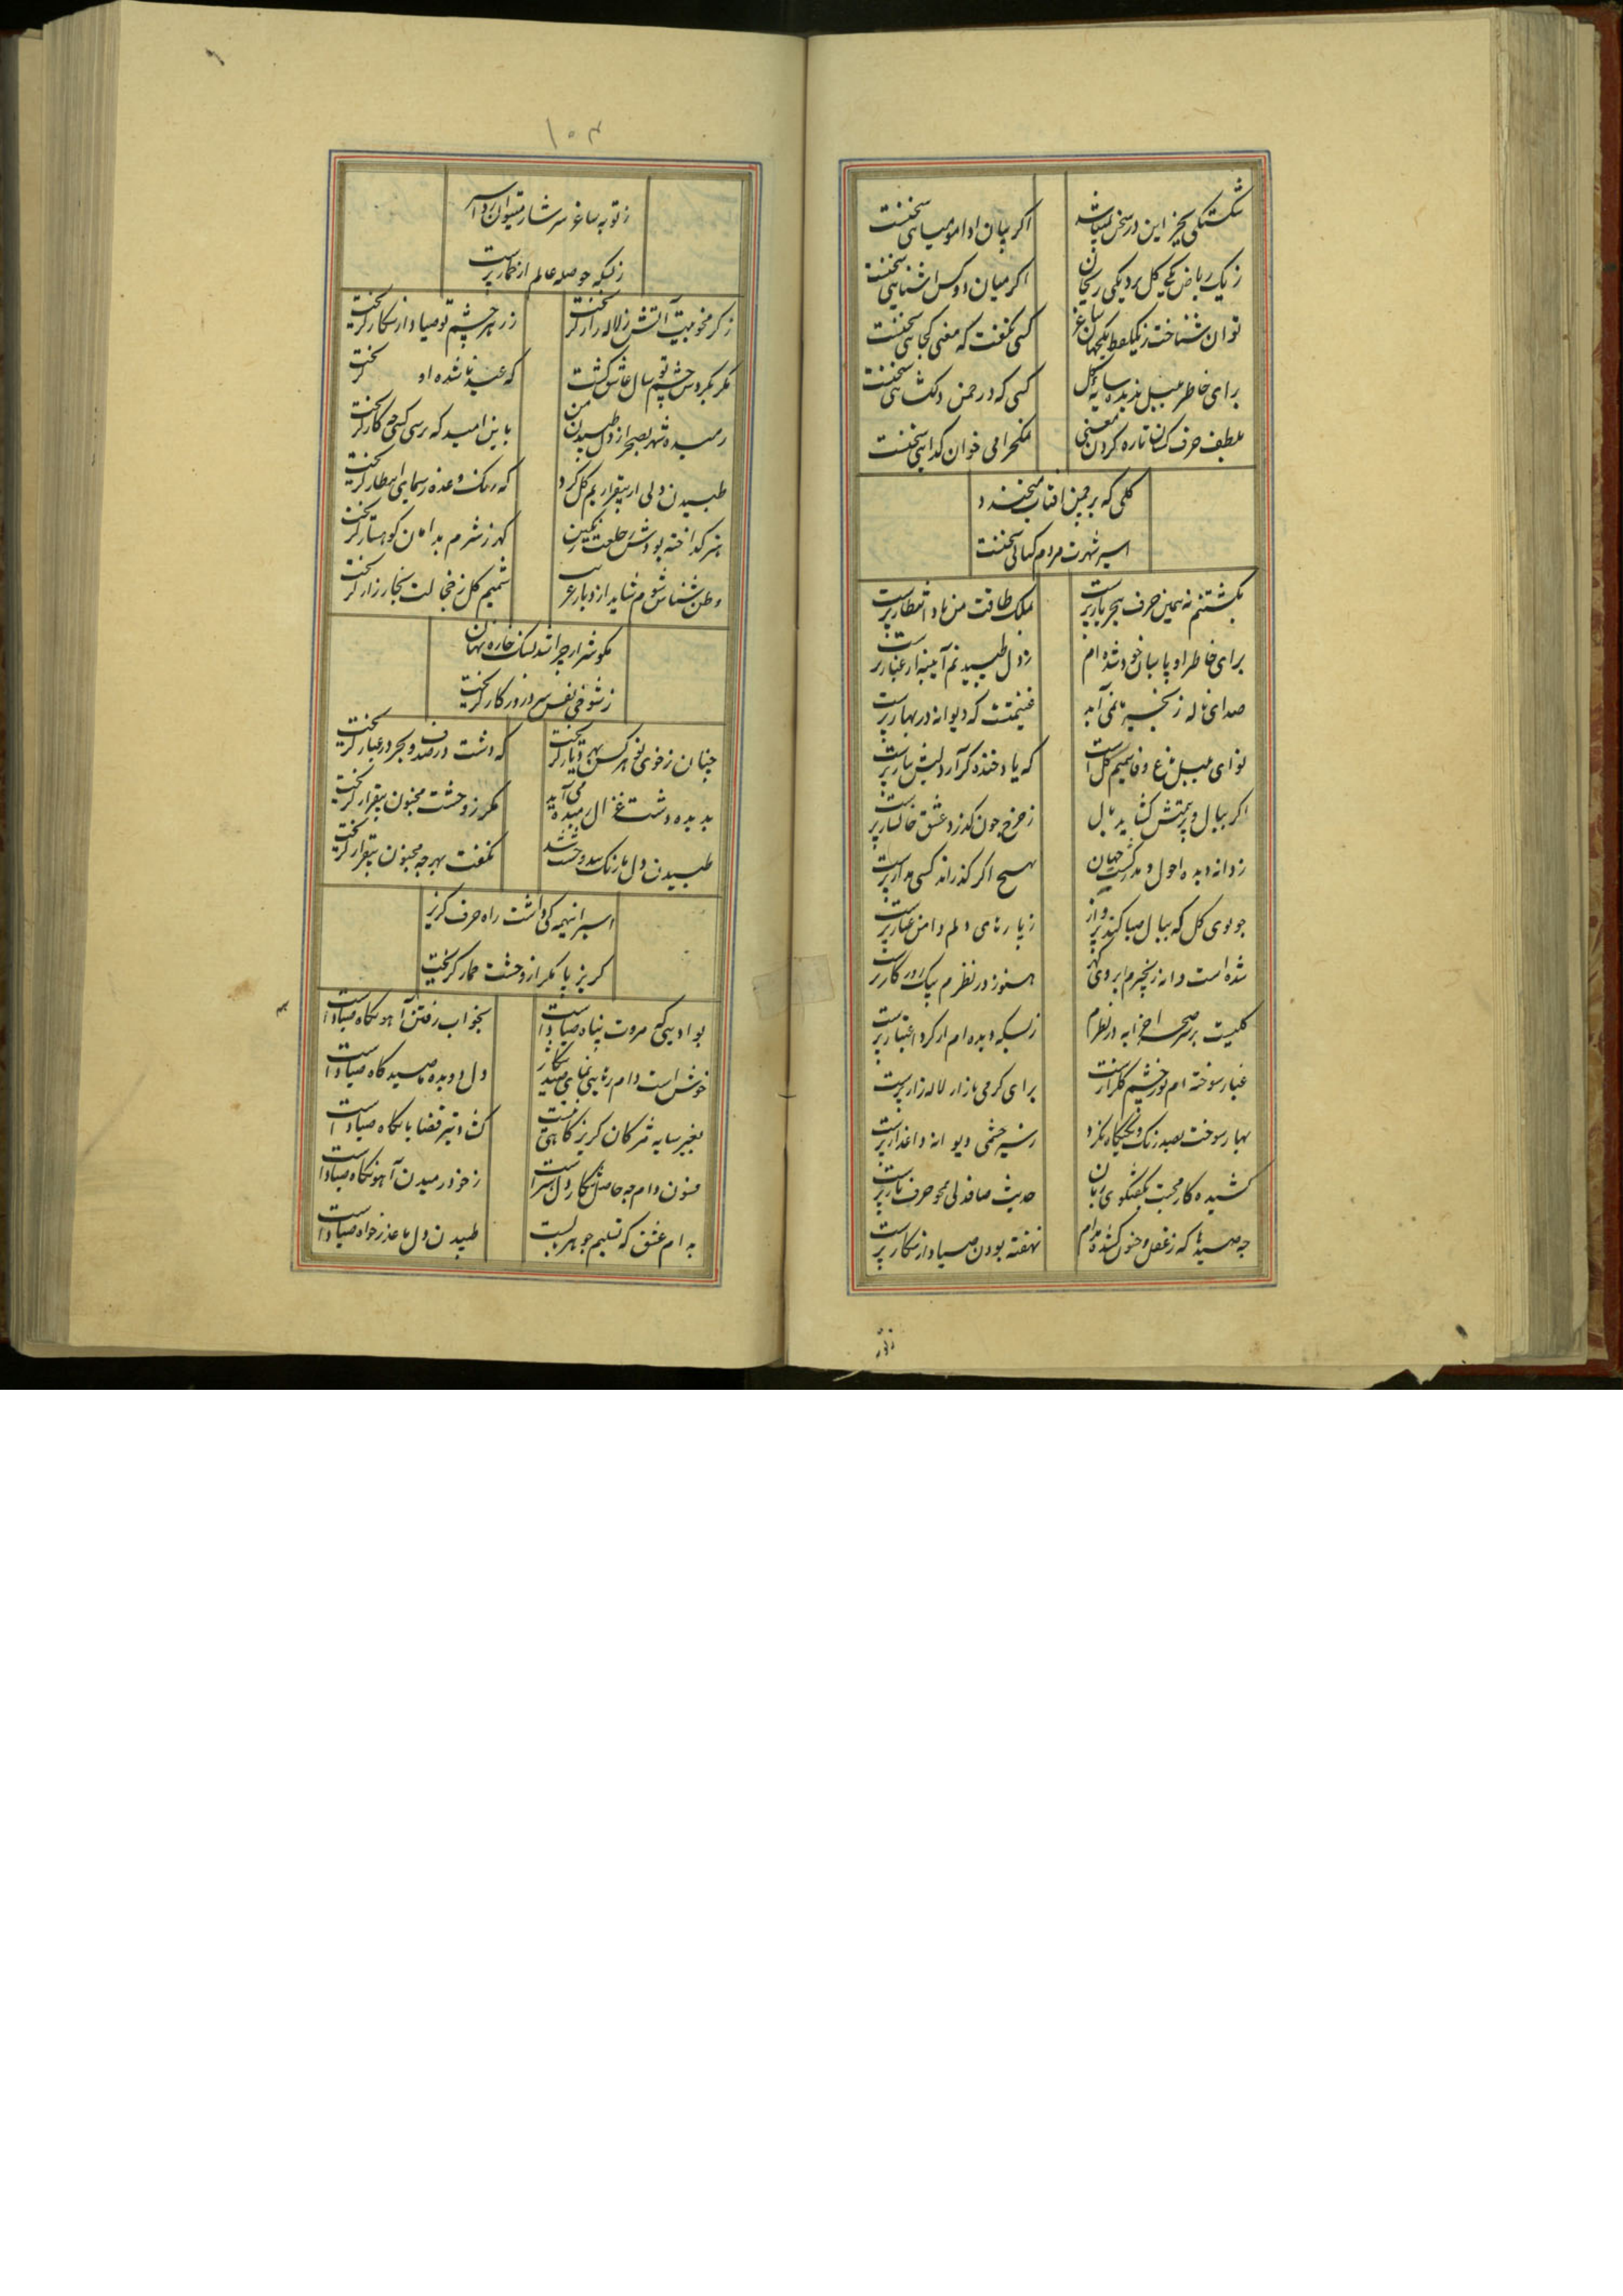 شکستکی بجز این در سخن نمیباشد
اکر بیان ادا مومیایی سخنست
ز یک ریاض یکی کل برد یکی ریحان
اکر میان دو کس آشنایی سخنست
توان شناخت ز یک لفظ یکجهان ساغر
کسی نکفت که معنی کجایی سخنست
برای خاطر بلبل ندیده سایه کل
کسی که در چمن دلکشایی سخنست
بلطف حرف کسان تازه کردن معنی
نمکحرامی خوان کدایی سخنست
کلی که بر چمن افتاب میخندد
اسیر شهرت مردم کیایی سخنست
بکشتنم نه همین حرف هجر یار پرست
ملک طاقت من باد انتظار پرست
برای خاطر او پاسبان خود شده ام
ز دل طپیدنم آیینه از غبار پرست
صدای ناله زنجیر ما نمی آید
غنیمتست که دیوانه در بهار پرست
نوای بلبل باغ وفا شمیم کل است
که یاد خنده کر آرد لبش ز یار پرست
اکر ببال و پر همتش کشاید بال
ز چرخ چون کذرد عشق خاکسار پرست
ز دانه دیده احول و مد کشت جهان
بهیچ اکر کذراند کسی مدار پرست
چو بوی کل که ببال صبا کند پرواز
ز پاره های دلم دامن غبار پرست
شده است دانه زنجیرم ابروی کهر
هنوز در نظرم پیک روزکار پرست
کلیست بر سر صحرا خرابه در نظرم
ز بسکه دیده ام از کرد اعتبار پرست
غبار سوخته ام نور چشم کلزارست
برای کرمی بازار لاله زار پرست
بهار سوخت بصد رنک و نیم نکاه نکرد
ز سیر چشمی دیوانه داغدار پرست
کشیده کار محبت بکفتکوی زبان
حدیث صافدلی محو حرف یار پرست
چه صیدها که ز عقل و جنون کشد دامم
نهفته بودن صیاد از شکار پرست
ز توبه ساغر سرشار میتوان زد اسیر
ز بسکه حوصله عالم از خمار پرست
ز کرمخویت آتش ز لاله زار کریخت
ز زهر چشم تو صیاد از شکار کریخت
مکر بکردش چشم تو سال عاشق کشت
که عید ناشده او کریخت
رمیده شهر بصحرا ز دل طپیدن من
باین امید که پرسی کسی چه کار کریخت
طپیدن دلی از بیقراریم کل کرد
که رنک وعده ز سیمای انتظار کریخت
هنر کداخته بودش ز خلعت رنکین
کهر ز شرم بدامان کوهسار کریخت
وطن شناس شوم شاید از دیار غریب
شمیم کل ز خجالت بخارزار کریخت
مکو شرار چرا شد بسنک خاره نهان
ز شوخی نفس سرد روزکار کریخت
چنان ز خوی تو هر کس بهر دیار کریخت
که دشت در صدف و بحر در غبار کریخت
بدیده دشت غزال رمیده می آید
مکر ز وحشت مجنون بیقرار کریخت
طپیدن دل ما رنک سد وحشت شد
نکفت بهر چه مجنون بیقرار کریخت
اسیر اینهمه کی داشت راه حرف کریز
کریز پا مکر از وحشت خمار کریخت
بوادیی که مروت پناه صیاد است
بخواب رفتن آهو نکاه صیاد است
خوش است دام رهایی نمای صید شکار
دل دو دیده ما صید کاه صیاد است
بغیر سایه مژکان کریز کاهی نیست
کشاد تیر قضا با نکاه صیاد است
فسون دام چه حاصل شکار دل هنر است
ز خود رمیدن آهو نکاه صیاد است
بدام عشق که تسلیم جوهر ادبست
طپیدن دل ما عذرخواه صیاد است